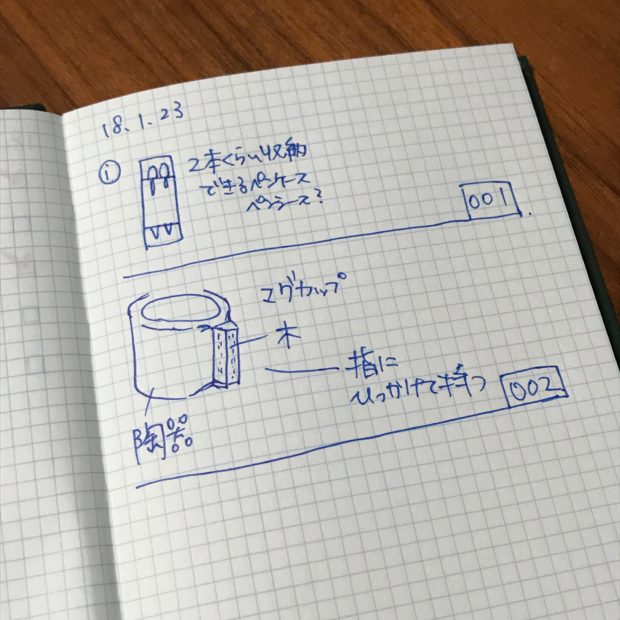 18.1.23
①
2本くらい収納
できるペンケース
ペンシース?
001
マグカップ
木
指に
ひっかけて持つ
002
陶器